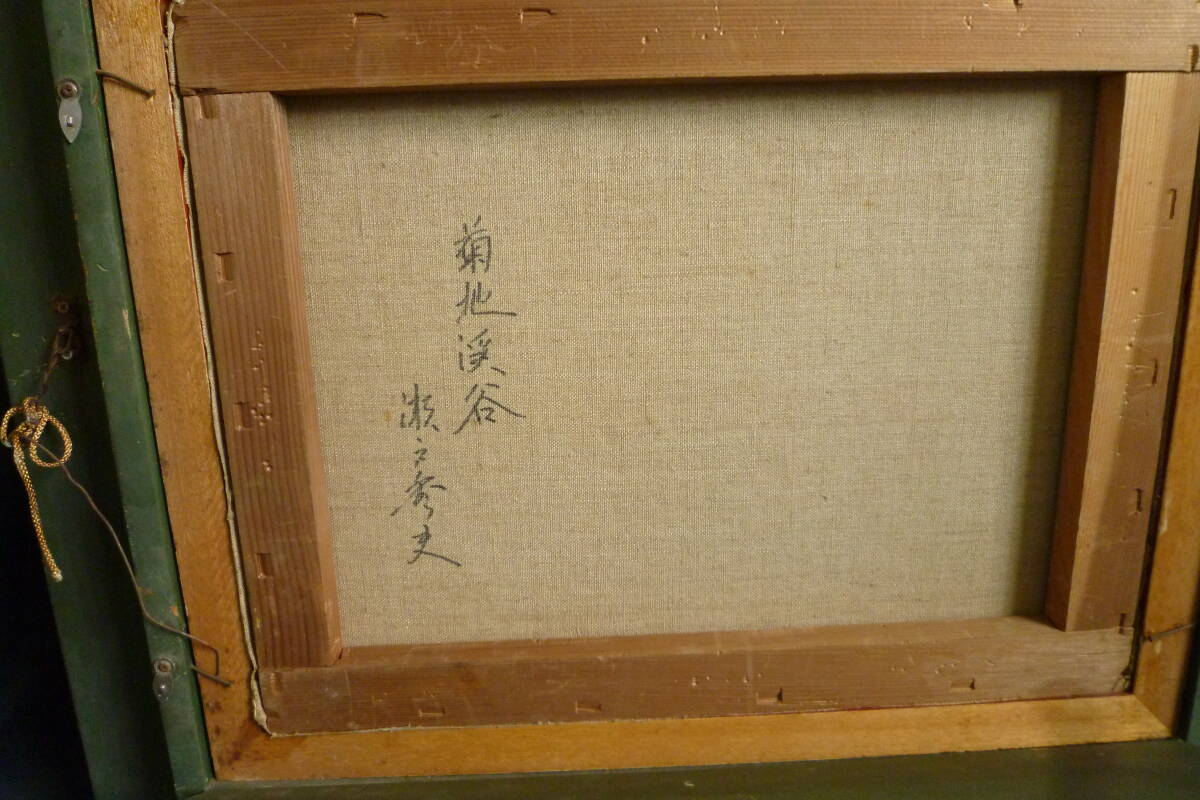 菊地渓谷
瀬戸秀夫